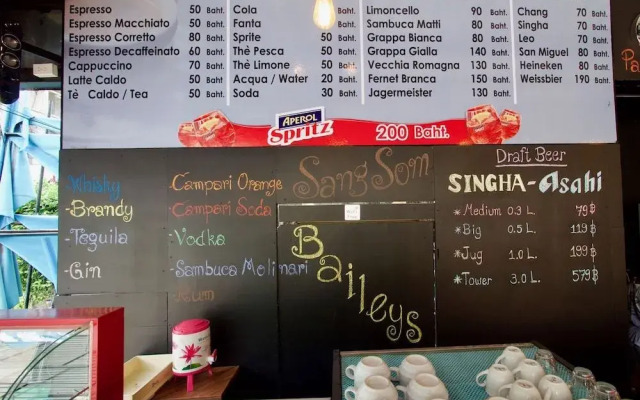 Espresso 50 Baht.
Espresso Macchiato 50 Baht.
Espresso Corretto 80 Baht.
Espresso Decaffeinato 60 Baht.
Cappuccino 70 Baht.
Latte Caldo 50 Baht.
Tè Caldo / Tea 50 Baht.
Cola 50 Baht.
Fanta 50 Baht.
Sprite 50 Baht.
Thè Pesca 50 Baht.
Thè Limone 50 Baht.
Acqua / Water 20 Baht.
Soda 30 Baht.
Limoncello 90 Baht.
Sambuca Matti 80 Baht.
Grappa Bianca 80 Baht.
Grappa Gialla 140 Baht.
Vecchia Romagna 130 Baht.
Fernet Branca 150 Baht.
Jagermeister 130 Baht.
Chang 70 Baht.
Singha 70 Baht.
Leo 70 Baht.
San Miguel 80 Baht.
Heineken 80 Baht.
Weissbier 190 Baht.
APEROL
Spritz
200 Baht.
-Whisky
-Brandy
-Tequila
-Gin
-Campari Orange
-Campari Soda
-Vodka
-Sambuca Molinari
-Rum
Sang Som
Baileys
Draft Beer
SINGHA-Asahi
*Medium 0.3 L. 79฿
*Big 0.5 L. 119฿
*Jug 1.0 L. 199฿
*Tower 3.0 L. 579฿
Pa